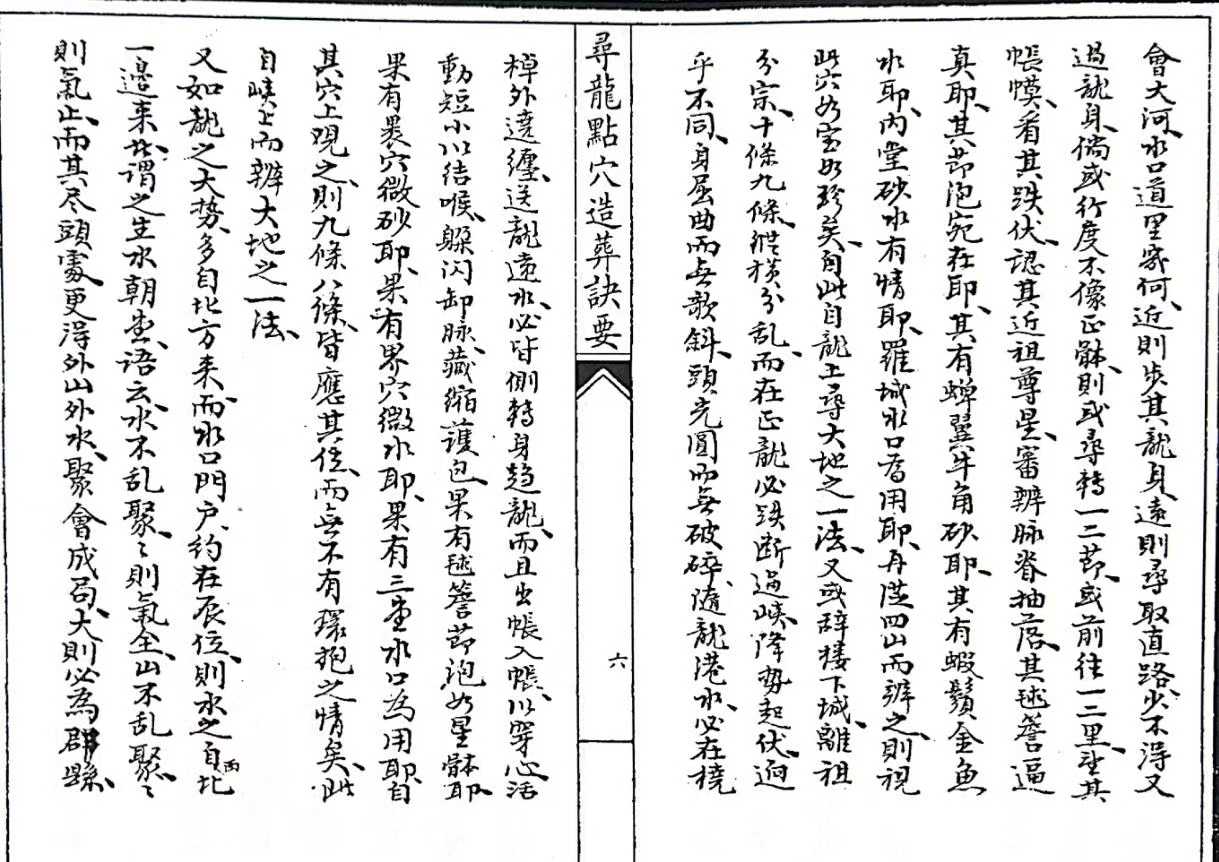 會大河、水口道里寀何、近則步其龍身、遠則尋取直路、少不淂又
過龍身、倘或行度不像正骵、則或尋轉一二節、或前往一二里、望其
帳幙、看其跌伏、認其近祖尊星、審辨脉脊抽落、其毬簷逼
真耶、其節泡宛在耶、其有蟬翼牛角砂耶、其有蝦鬚金魚
水耶、內堂砂水有情耶、羅城水口旹用耶、再從四山而辨之、則視
此穴如宝如珍矣、自此自龍上尋大地之一法、又或辞楼下城、離祖
分宗、十條九條、縱橫分乱、而在正龍必跌断過峽、降勢起伏、逈
乎不同、身屈曲而無欹斜、頭光圓而無破碎、隨龍港水、必在橈
尋龍點穴造葬訣要
六
棹外遶纏、送龍遠水、必皆側轉身趋龍、而且出帳入帳、以穿心活
動短小以结喉、躲闪卸脉、藏縮護包、果有毬簷節泡如星骵耶、
果有褁穴微砂耶、果有界穴微水耶、果有三堂水口為用耶、自
其穴上观之、則九條八條、皆應其佐、而無不有環抱之情矣、此
自峽上而辨大地之一法、
又如龍之大势、多自北方来、而水口門户、约在辰位、則水之自西北
一邉来、此謂之生水朝堂、语云、水不乱聚、〻則氣全、山不乱聚、〻
則氣止、而其尽頭處、更淂外山外水、聚會成局、大則必為郡縣、